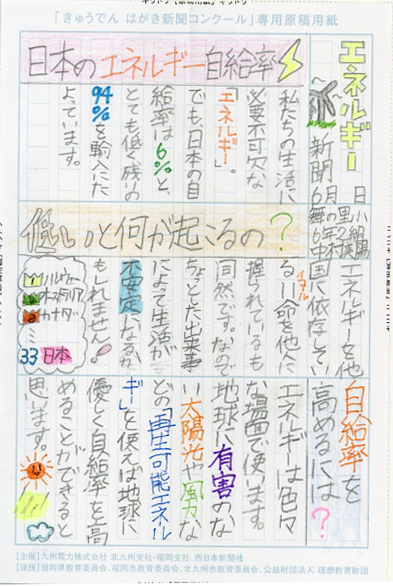 「きゅうでん はがき新聞コンクール」専用原稿用紙
エネルギー
新聞
6月 日
舞の里小
6年2組
日本のエネルギー自給率
私たちの生活に
必要不可欠な
「エネルギー」。
でも、日本の自
給率は6%と、
とても低く残りの
94%を輸入にた
よっています。
低いと何が起こるの?
エネルギーを他
国に依存してい
る=命を他人に
イコール
握られているも
同然です。なので
ちょっとした出来事
によって生活が
不安定になるか
もしれません!
ノルウェー
オーストラリア
カナダ
33 日本
自給率を
高めるには?
エネルギーは色々
な場面で使います。
地球に有害のな
い太陽光や風力な
どの「再生可能エネル
ギー」を使えば地球に
優しく自給率を高
めることができると
思います。
【主催】九州電力株式会社 北九州支社・福岡支社、西日本新聞社
【後援】福岡県教育委員会、福岡市教育委員会、北九州市教育委員会、公益財団法人 理想教育財団